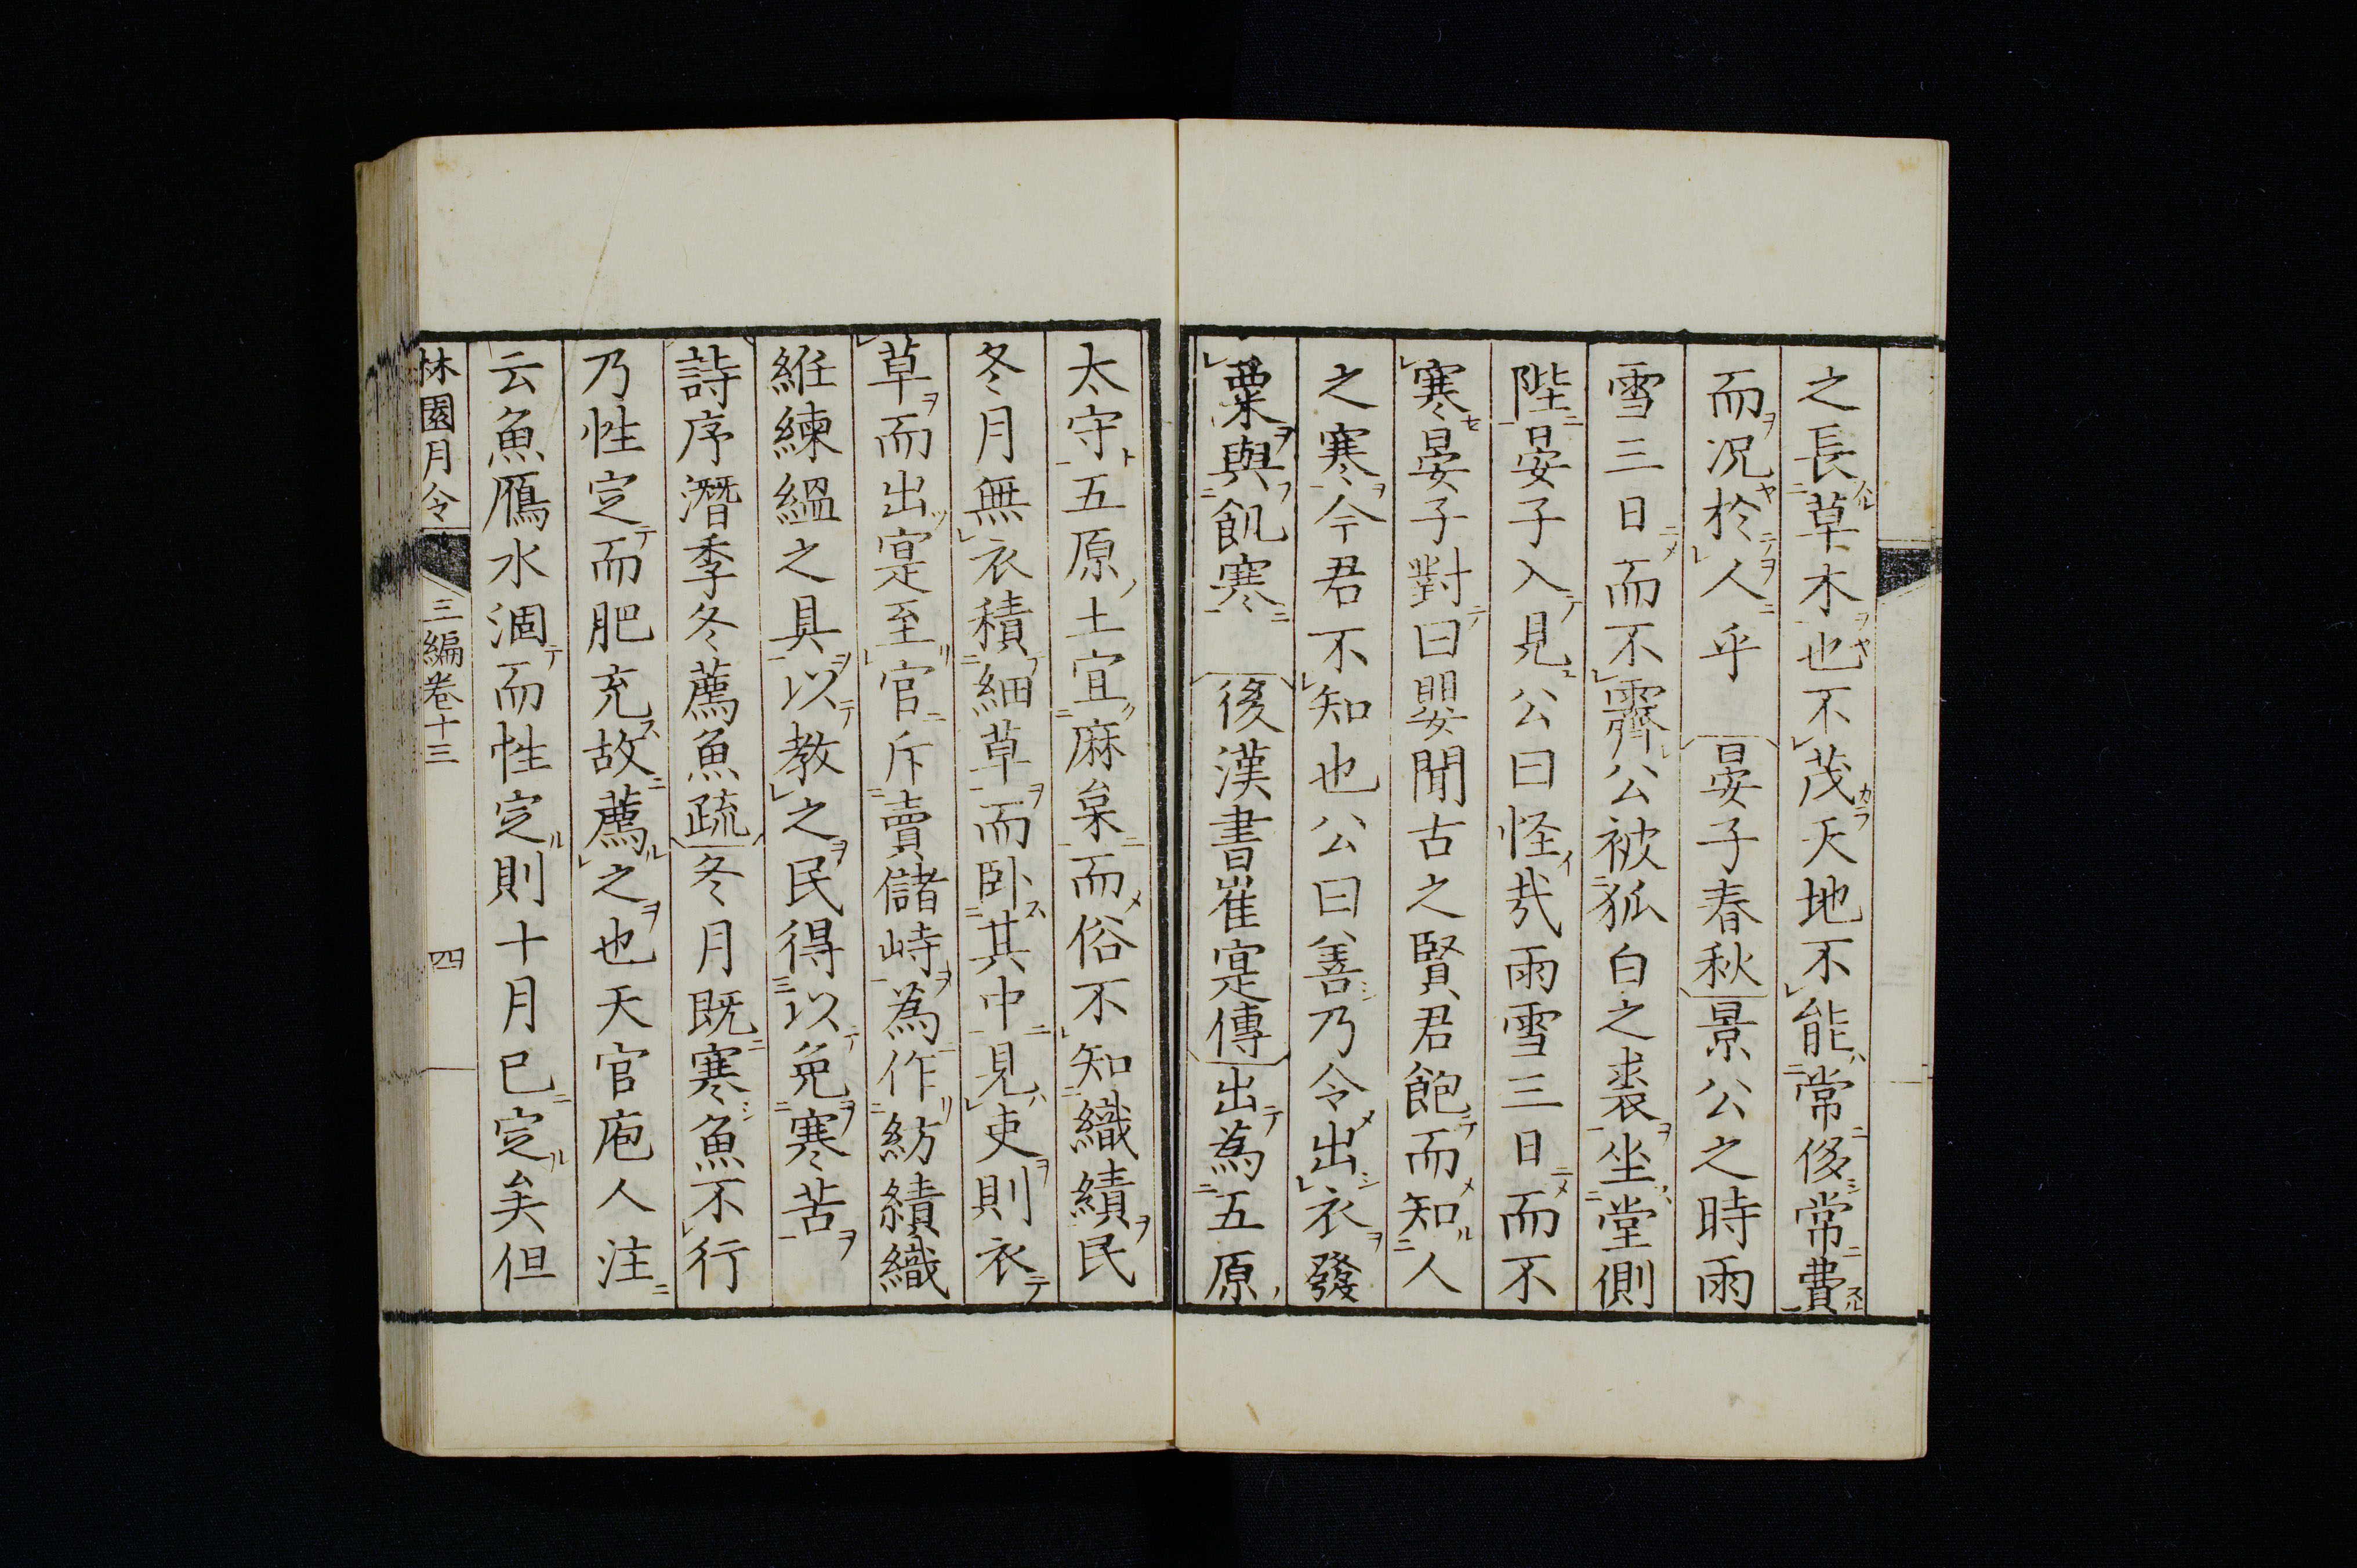 之長草木也不茂天地不能常侈常費
而況於人乎　晏子春秋景公之時雨
雪三日而不霽公被狐白之裘坐堂側
陛晏子入見公曰怪哉雨雪三日而不
寒晏子對曰嬰聞古之賢君飽而知人
之寒今君不知也公曰善乃令出衣發
粟與飢寒　後漢書崔寔傳出為五原
太守五原土宜麻枲而俗不知織績民
冬月無衣積細草而卧其中見吏則衣
草而出寔至官斥賣儲峙為作紡績織
維練縕之具以教之民得以免寒苦
詩序潛季冬薦魚疏冬月既寒魚不行
乃性定而肥充故薦之也天官庖人注
云魚鴈水涸而性定則十月已定矣但
林園月令　三編卷十三　四